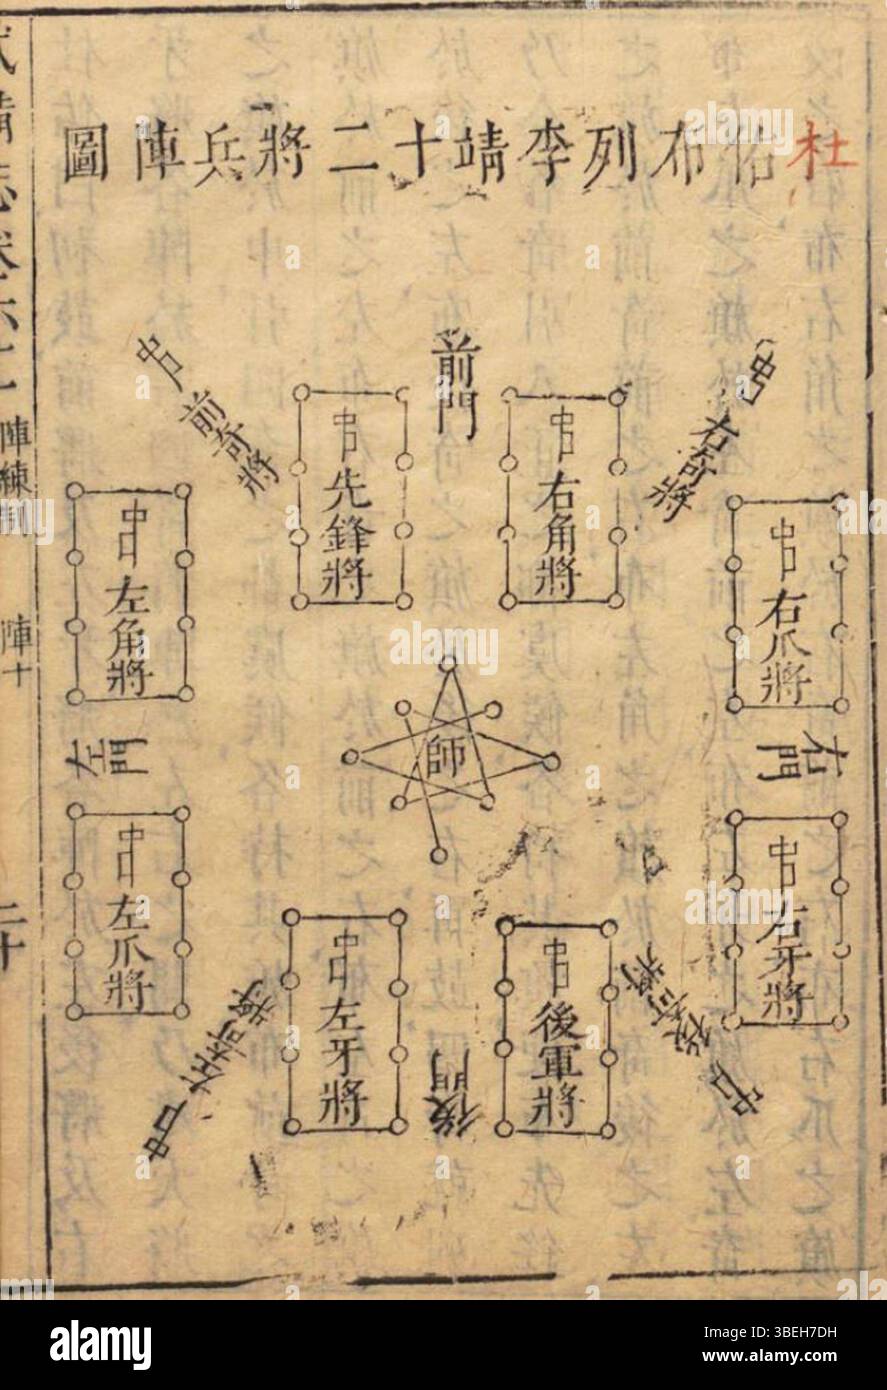 杜佑布列李靖十二將兵陣圖
前門
右角將
先鋒將
右奇將
前奇將
右爪將
左角將
右門
師
左門
右牙將
左爪將
後軍將
左牙將
後奇將
左奇將
後門
武備志卷六十
陣練制
陣十
二十
alamy
Image ID: 3BEH7DH
www.alamy.com